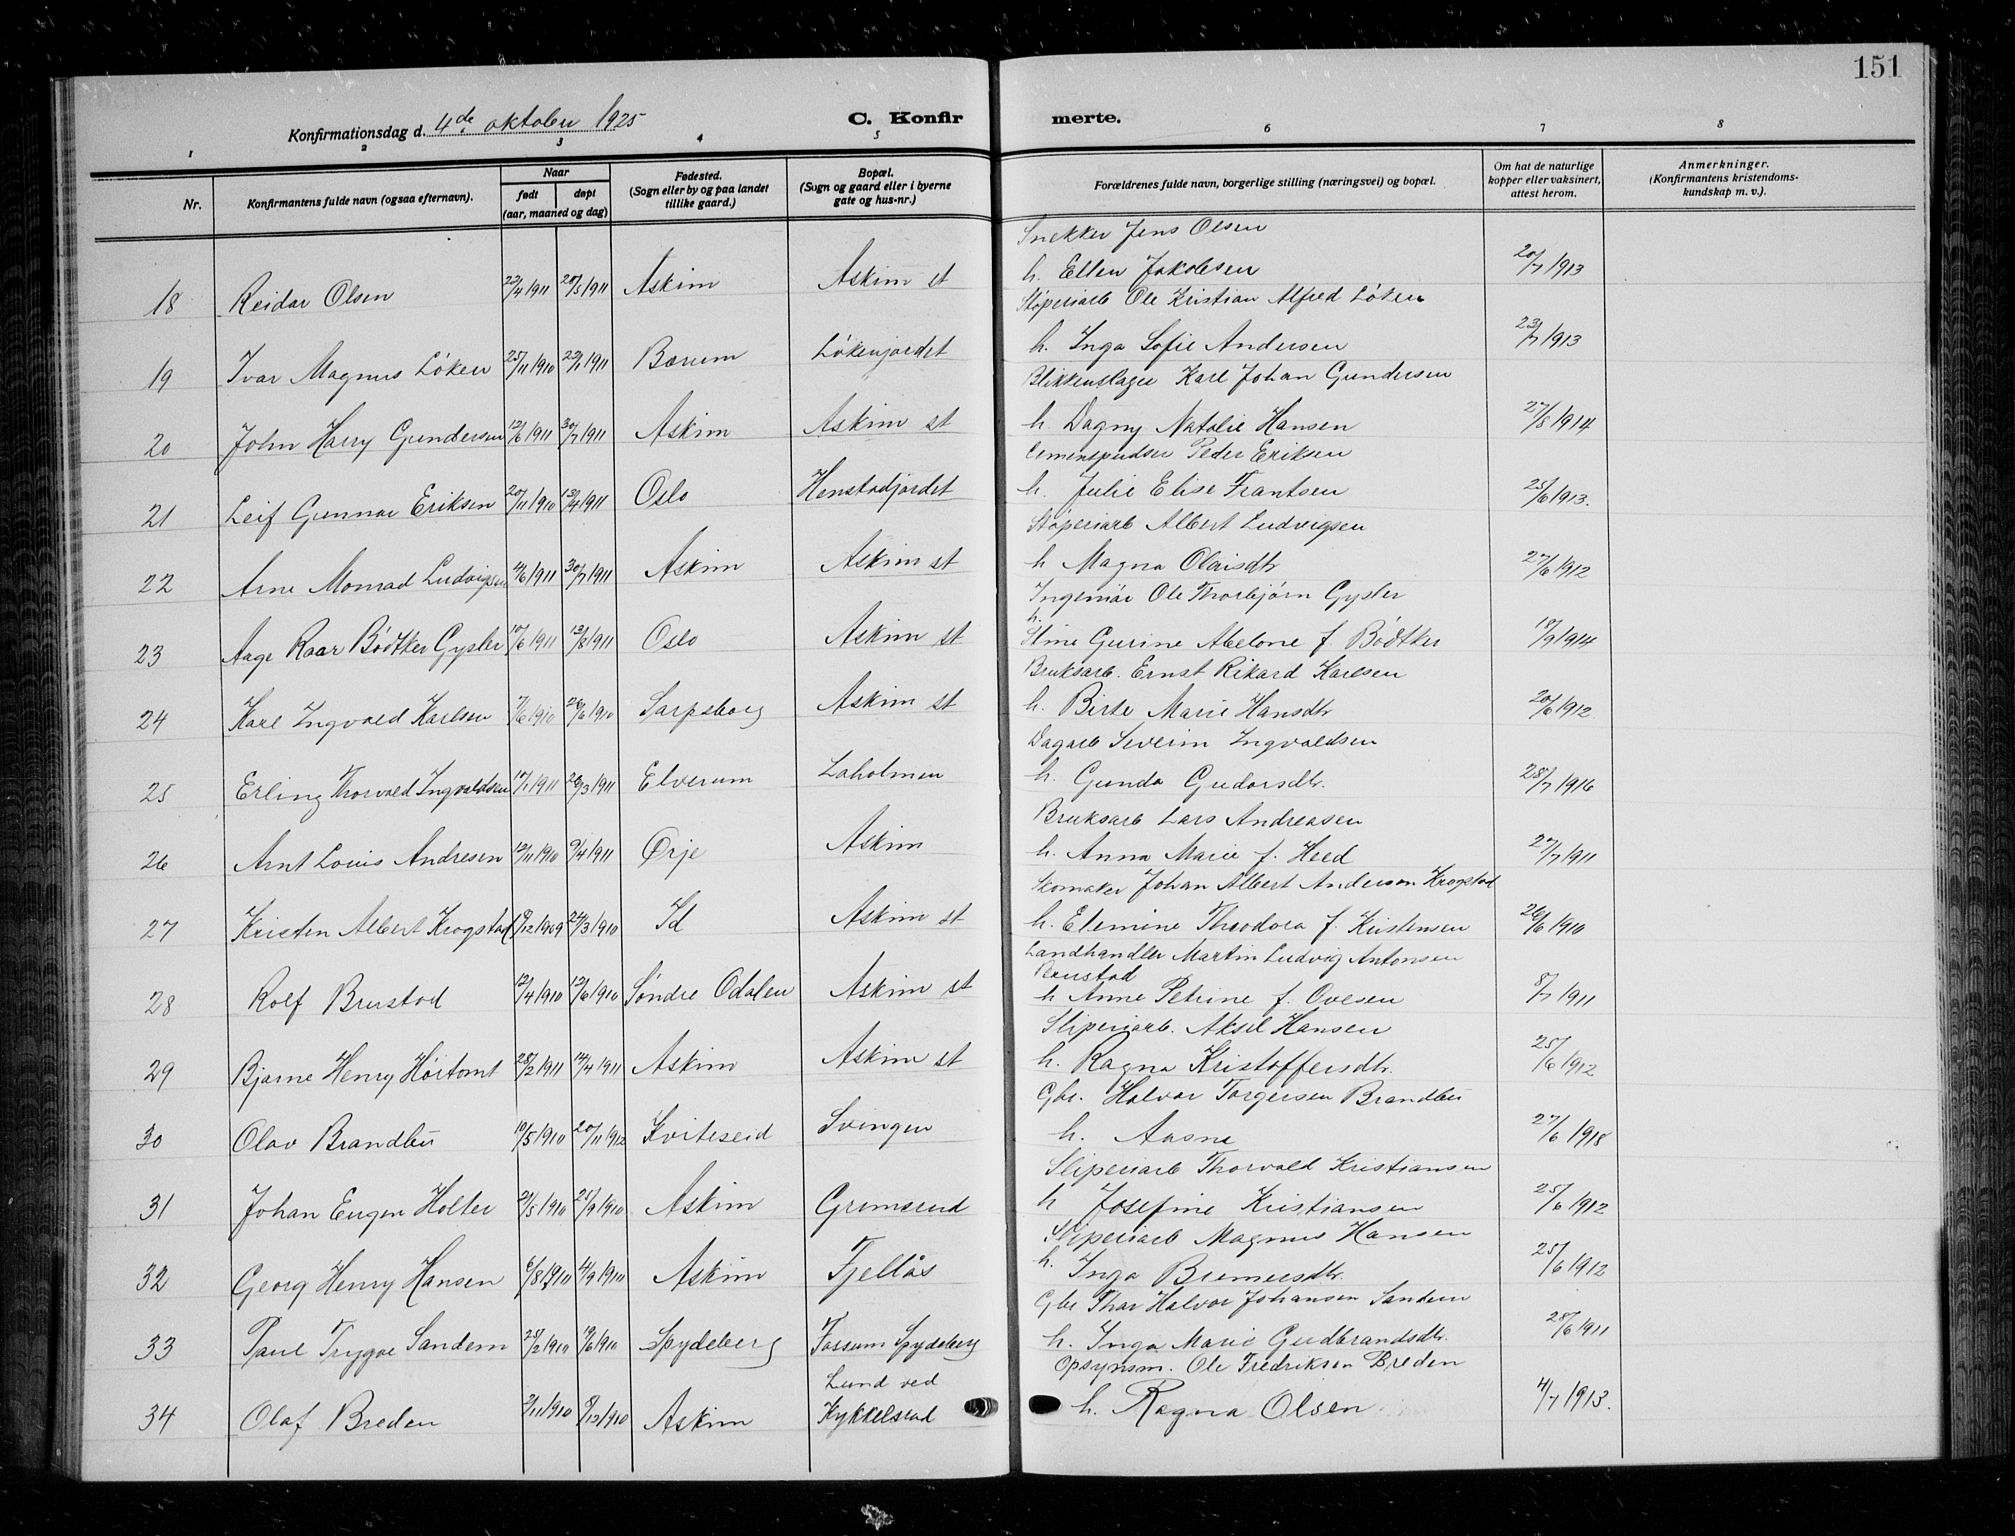 151
Konfirmationsdag d. 4de oktober 1925
C. Konfirmerte.
1 2 3 4 5 6 7 8
Nr.
Konfirmantens fulde navn (ogsaa efternavn).
Naar
født døpt
(aar, maaned og dag)
Fødested.
(Sogn eller by og paa landet
tillike gaard.)
Bopæl.
(Sogn og gaard eller i byerne
gate og hus-nr.)
Forældrenes fulde navn, borgerlige stilling (næringsvei) og bopæl.
Om hat de naturlige
kopper eller vaksinert,
attest herom.
Anmerkninger.
(Konfirmantens kristendoms-
kundskap m. v.).
Snekker Jens Olsen
18 Reidar Olsen 23/4 1911 28/5 1911 Askim Askim st h. Ellen Jakobsen 20/7 1913
Støperiarb Ole Kristian Alfred Løken
19 Ivar Magnus Løken 25/11 1910 23/1 1911 Bærum Løkenjordet h. Inga Sofie Andersen 23/7 1913
Blikkenslager Karl Johan Gundersen
20 John Harry Gundersen 12/6 1911 30/7 1911 Askim Askim st h. Dagny Natalie Hansen 27/8 1914
Cementpudser Peder Eriksen
21 Leif Gunnar Eriksen 20/11 1910 13/4 1911 Oslo Henstadjordet h. Julie Elise Frantsen 25/6 1913.
Støperiarb Albert Ludvigsen
22 Arne Monrad Ludvigsen 4/6 1911 30/7 1911 Askim Askim st h Magna Olaisdtr 27/6 1912
Ingeniør Ole Thorbjørn Gysler
23 Aage Roar Bødtker Gysler 10/6 1911 13/8 1911 Oslo Askim st h. Stine Gurine Abelone f. Bødtker 18/9 1914
Bruksarb. Ernst Rikard Karlsen
24 Karl Ingvald Karlsen 7/6 1910 26/6 1910 Sarpsborg Askim st h. Birte Marie Hansdtr 20/6 1912
Dagarb Severin Ingvaldsen
25 Erling Thorvald Ingvaldsen 17/1 1911 26/3 1911 Elverum Laholmen h. Gunda Gudarsdtr. 28/7 1916
Bruksarb Lars Andreasen
26 Arnt Louis Andresen 12/11 1910 9/4 1911 Ørje Askim h. Anna Marie f. Heed 27/7 1911
Skomaker Johan Albert Anderson Krogstad
27 Kristen Albert Krogstad 9/12 1909 24/3 1910 Id Askim st h. Elemine Theodora f. Kristensen 26/6 1910
Landhandler Martin Ludvig Antonsen
Brustad
28 Rolf Brustad 12/4 1910 12/6 1910 Søndre Odalen Askim st h Anne Petrine f. Ovesen 8/7 1911
Sliperiarb. Aksel Hansen
29 Bjarne Henry Hørtomt 28/2 1911 14/4 1911 Askim Askim st h. Ragna Kristoffersdtr. 25/6 1912
Gbr. Halvor Torgersen Brandbu
30 Olav Brandbu 10/5 1910 20/11 1912 Kviteseid Svingen h. Aasne 27/6 1918
Sliperiarb Thorvald Kristiansen
31 Johan Eugen Holter 21/5 1910 25/9 1910 Askim Grimsrud h Josefine Kristiansen 25/6 1912
Sliperiarb Magnus Hansen
32 Georg Henry Hansen 6/8 1910 4/9 1910 Askim Fjellås h. Inga Bremersdtr. 25/6 1912
Gbr Thor Halvor Johansen Sandem
33 Paul Trygve Sandem 25/2 1910 19/6 1910 Spydeberg Fossum Spydeberg h. Inga Marie Gudbrandsdtr. 28/6 1911
Opsynsm. Ole Fredriksen Breden
34 Olaf Breden 2/11 1910 8/12 1910 Askim Lund ved
Kykkelsrud h. Ragna Olsen 4/7 1913.